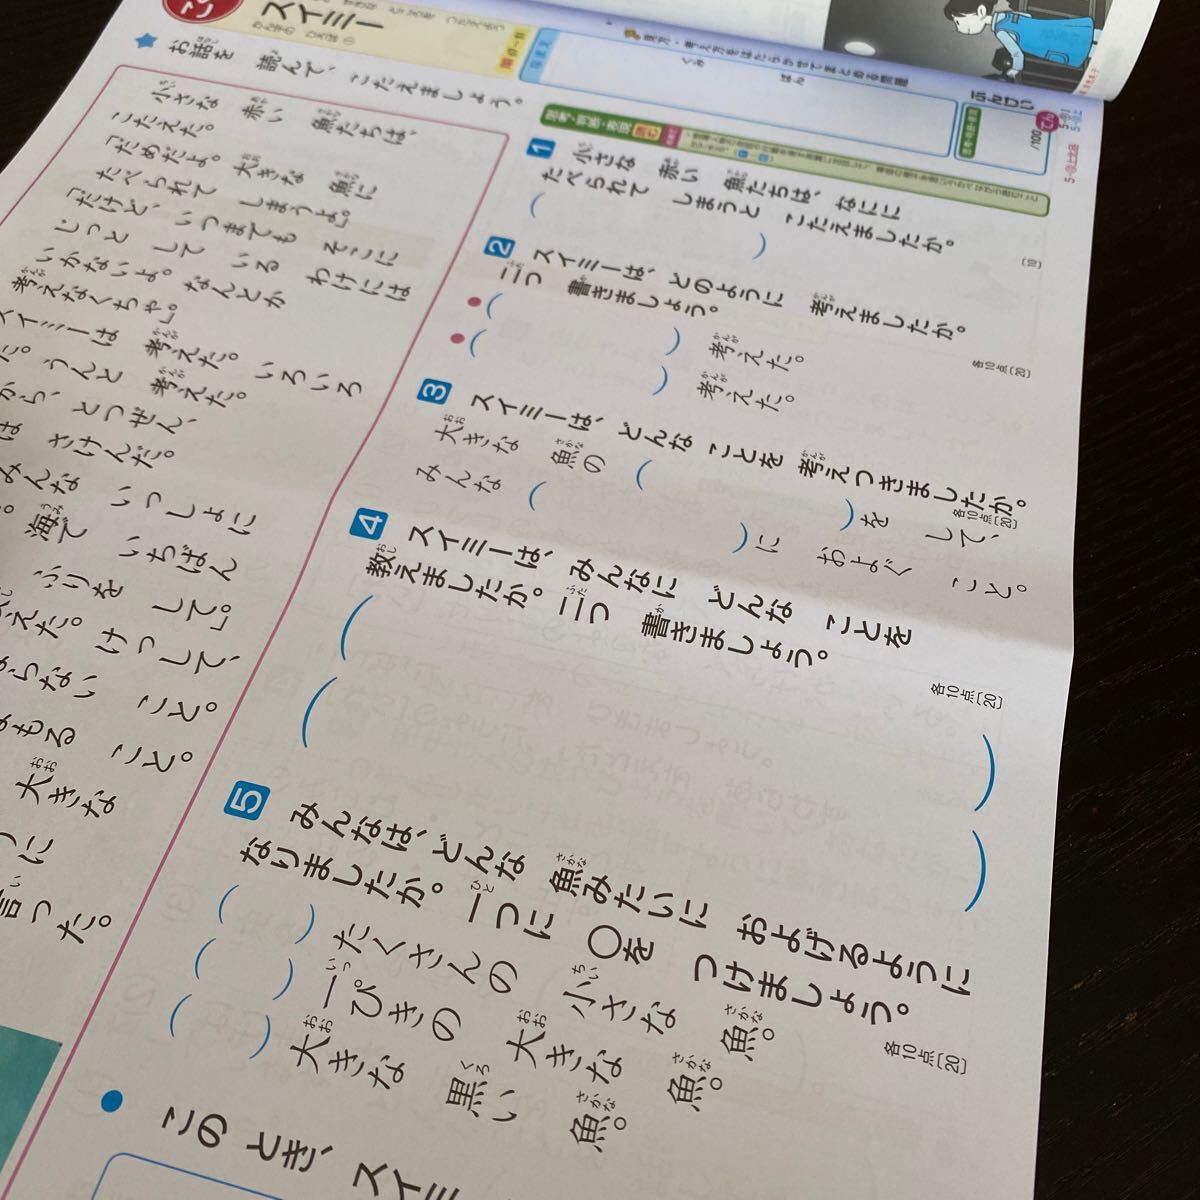 スイミー
お話を 読んで、こたえましょう。
小さな 赤い 魚たちは、
こたえた。
「だめだよ。大きな 魚に
たべられて しまうよ。」
「だけど、いつまでも そこに
じっと して いる わけには
いかないよ。なんとか
考えなくちゃ。」
スイミーは 考えた。いろいろ
うんと 考えた。
から、とつぜん、
さけんだ。
みんな いっしょに
海で いちばん
ふりを して。」
けっして、
ならない こと。
まもる こと。
大きな
言った。
見方・考え方をはたらかせてまとめる問題
くみ
ばん
/100
てん
思考・判断・表現
読む
1 小さな 赤い 魚たちは、なにに
たべられて しまうと こたえましたか。
( )
〔10〕
2 スイミーは、どのように 考えましたか。
二つ 書きましょう。
各10点〔20〕
( ) 考えた。
( ) 考えた。
3 スイミーは、どんな ことを 考えつきましたか。
各10点〔20〕
大きな 魚の ( )を して、
みんな ( )に およぐ こと。
4 スイミーは、みんなに どんな ことを
教えましたか。二つ 書きましょう。
各10点〔20〕
( )
( )
5 みんなは、どんな 魚みたいに およげるように
なりましたか。一つに ○を つけましょう。
各10点〔20〕
( ) たくさんの 小さな 魚。
( ) 一ぴきの 大きな 魚。
( ) 大きな 黒い 魚。
このとき、スイミ